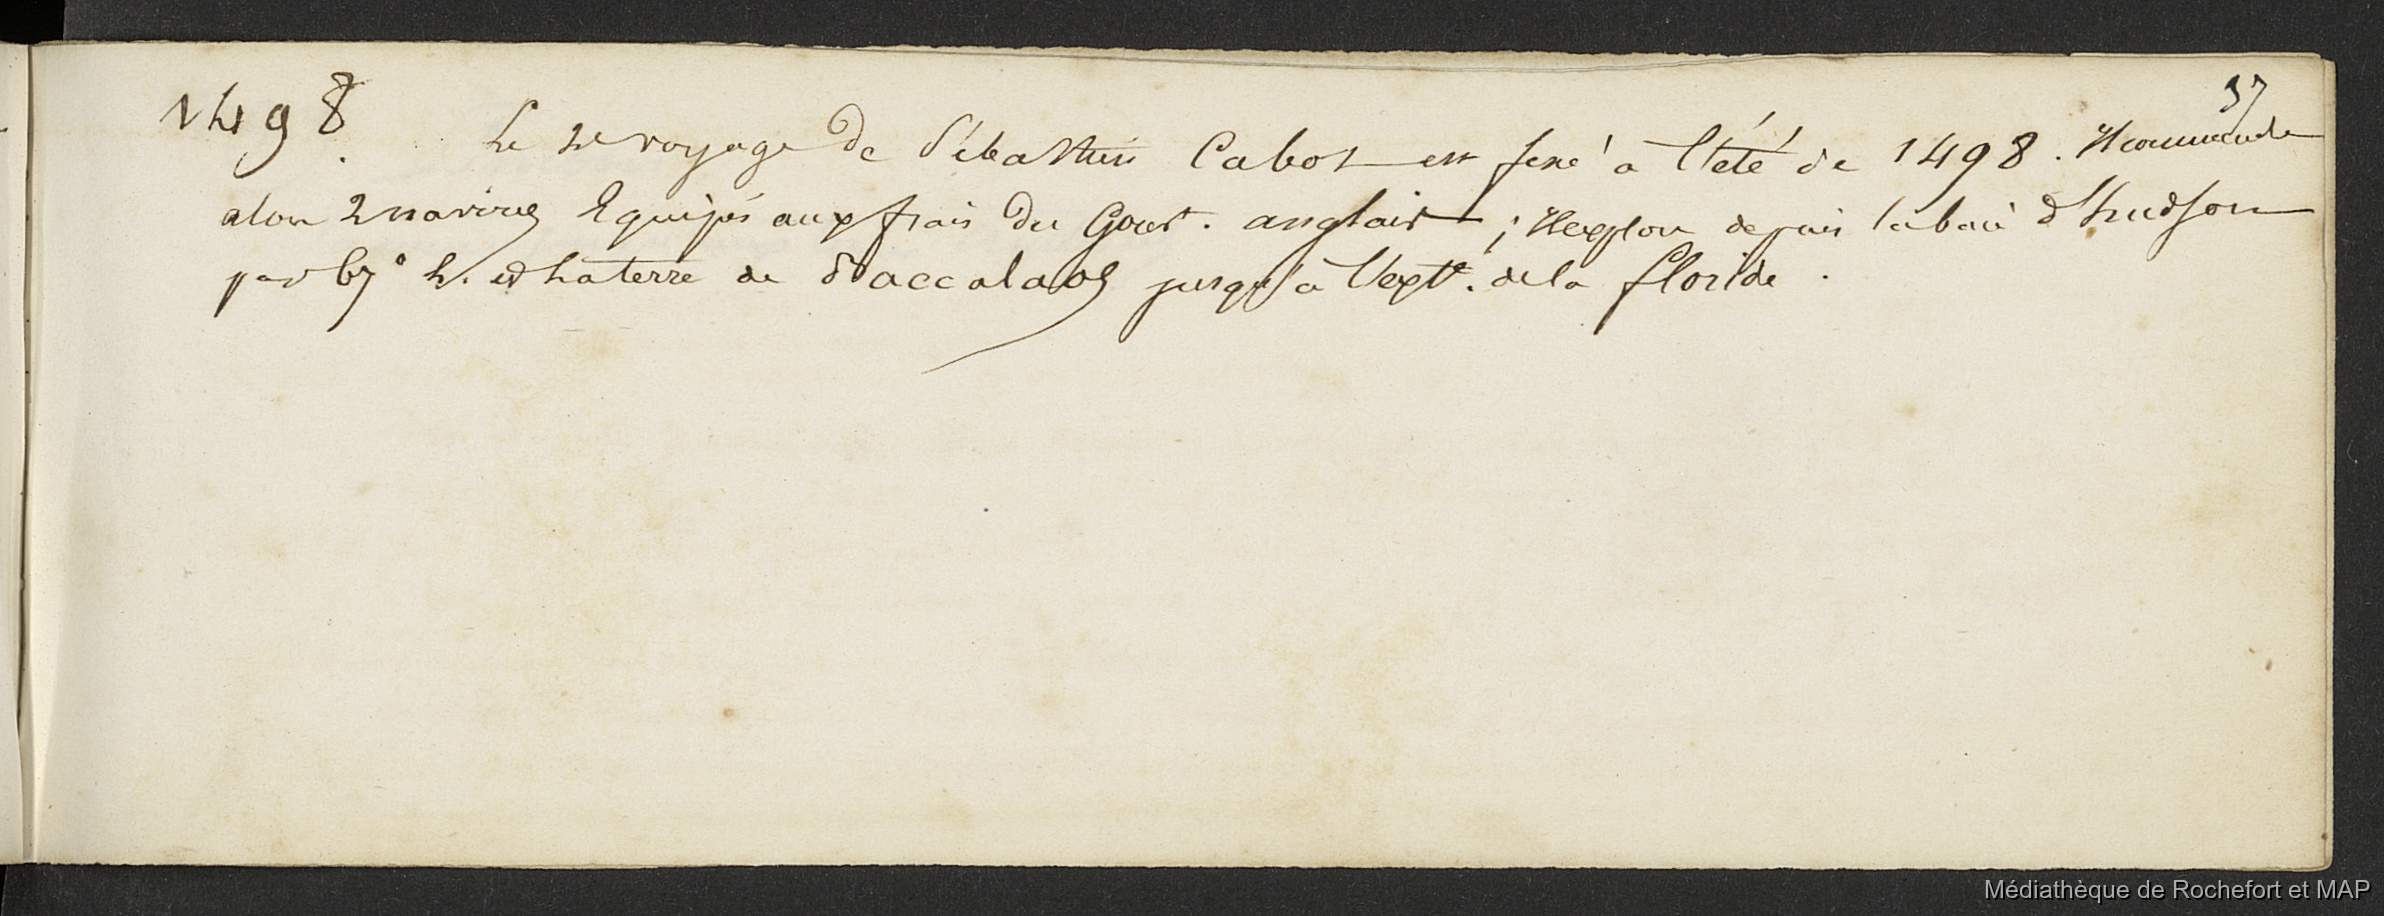 37
1498. Le 2e voyage de Sébastien Cabot est fixé à l'été de 1498. Il commande
alors 2 navires Equipés aux frais du Gouvt. anglais ; Il explore depuis la baie d'hudson
par 67° L. et la terre de Baccalaos jusqu'à l'extté. de la floride.
Médiathèque de Rochefort et MAP